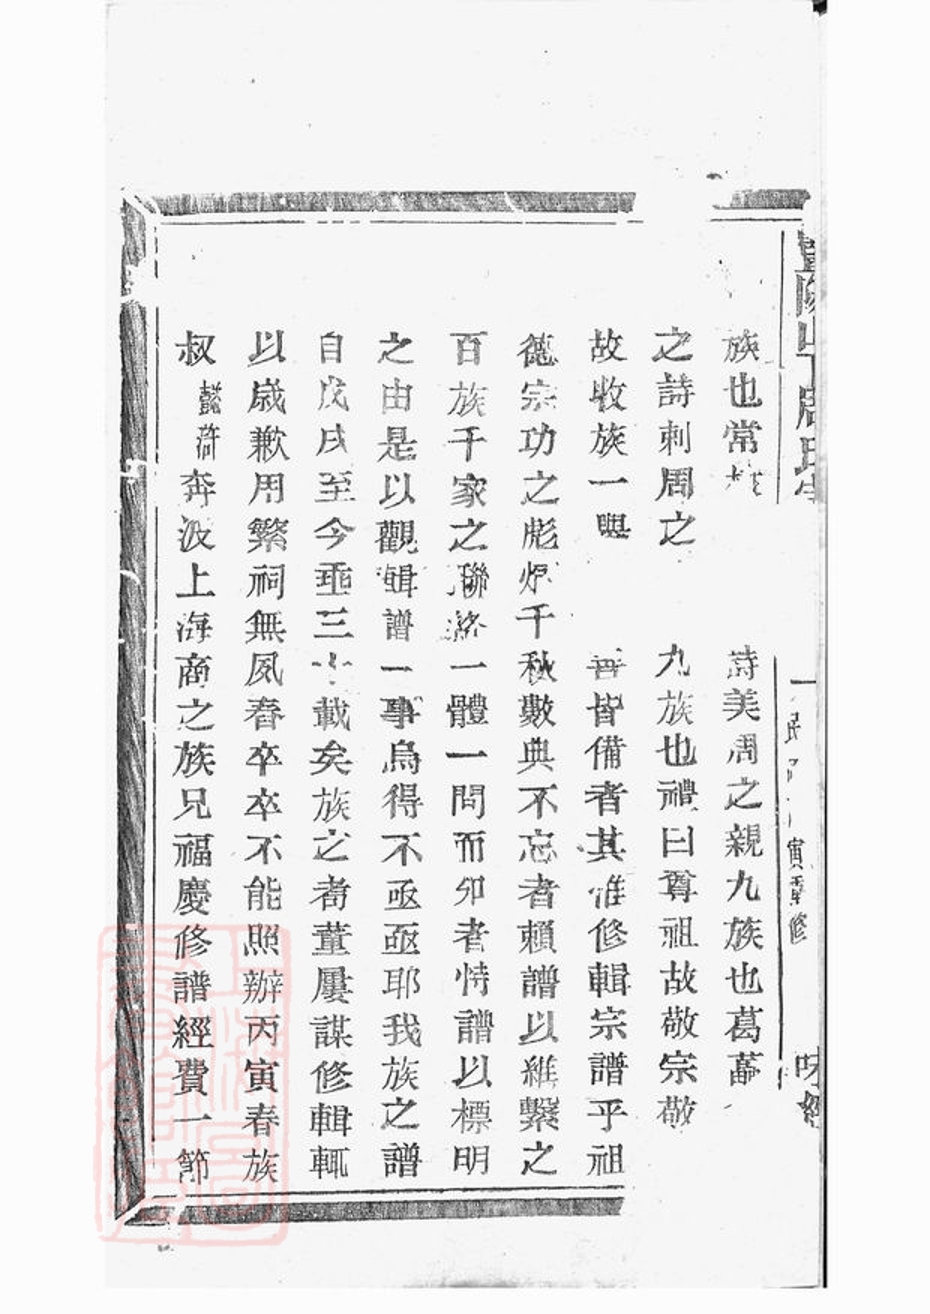 族也常棣詩美周之親九族也葛藟
之詩刺周之九族也禮曰尊祖故敬宗敬
故收族一興善皆備者其惟修輯宗譜乎祖
德宗功之彪炳千秋數典不忘者賴譜以維繫之
百族千家之聯絡一體一問而卯者恃譜以標明
之由是以觀輯譜一事烏得不亟亟耶我族之譜
自戊戌至今垂三十載矣族之耆董屢謀修輯輒
以歲歉用繁祠無夙舂卒卒不能照辦丙寅春族
叔懿滸奔波上海商之族兄福慶修譜經費一節
周氏
寅重修